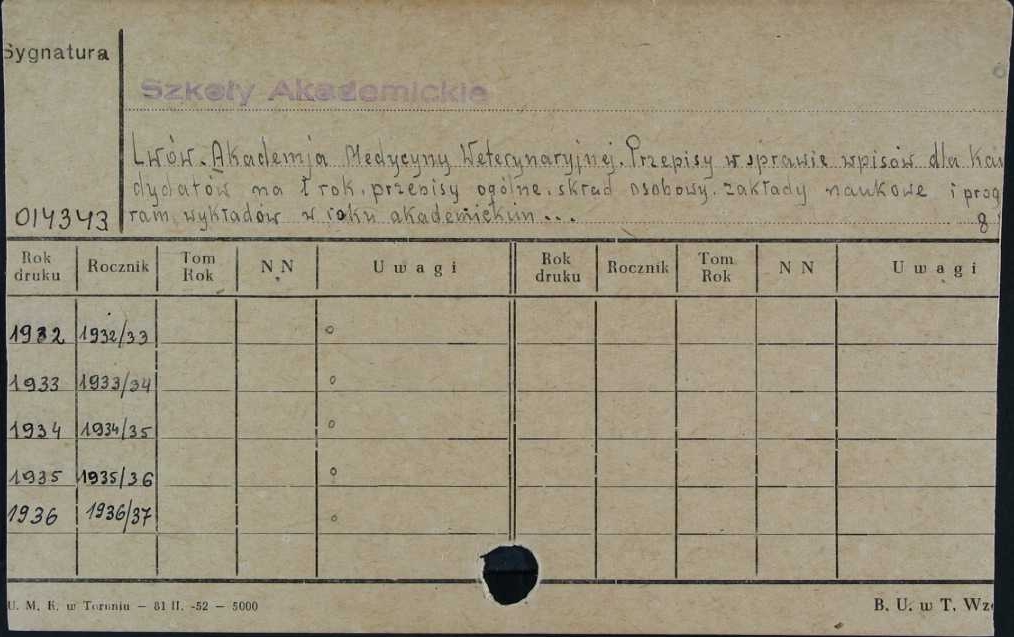 Sygnatura
Szkoły Akademickie
Lwów. Akademja Medycyny Weterynaryjnej. Przepisy w sprawie wpisów dla Kan
dydatów na I rok, przepisy ogólne, skład osobowy, zakłady naukowe i prog
ram wykładów w roku akademickim...
014343
8
Rok druku Rocznik Tom Rok N N Uwagi Rok druku Rocznik Tom Rok N N Uwagi
1932 1932/33
1933 1933/34
1934 1934/35
1935 1935/36
1936 1936/37
U. M. K. w Toruniu — 81 II. -52 — 5000
B. U. w T. Wzó